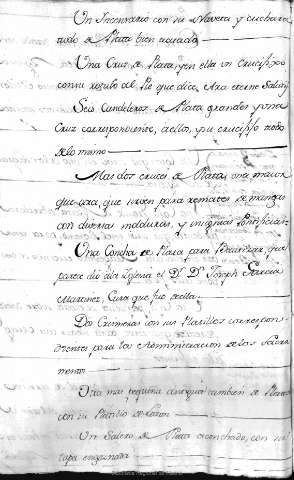 Un Incensario con su Naveta y cuchara
todo de Plata bien usada
Una Cruz de Plata, y en ella un crucifixo
con su rotulo al Pie que dice,
Seis Candeleros de Plata grandes y una
Cruz correspondiente, a ellos, y su crucifixo todo
de lo mismo
Mas dos cruces de Plata, una maior
que otra, que sirven para remates de mangas
con diversas molduras, y insignias Pontificias
Una Concha de Plata para Bautizar, que
parece dio a la Iglesia el Dr. Dn. Joseph Garcia
Martinez, Cura que fue de ella
Dos Crismeras con sus Platillos correspon
dientes para la Administracion de los Sacra
mentos
Otra mas pequeña antigua tambien de Plata
con su Platillo de
Un Salero de Plata aconchado, con su
tapa engoznada